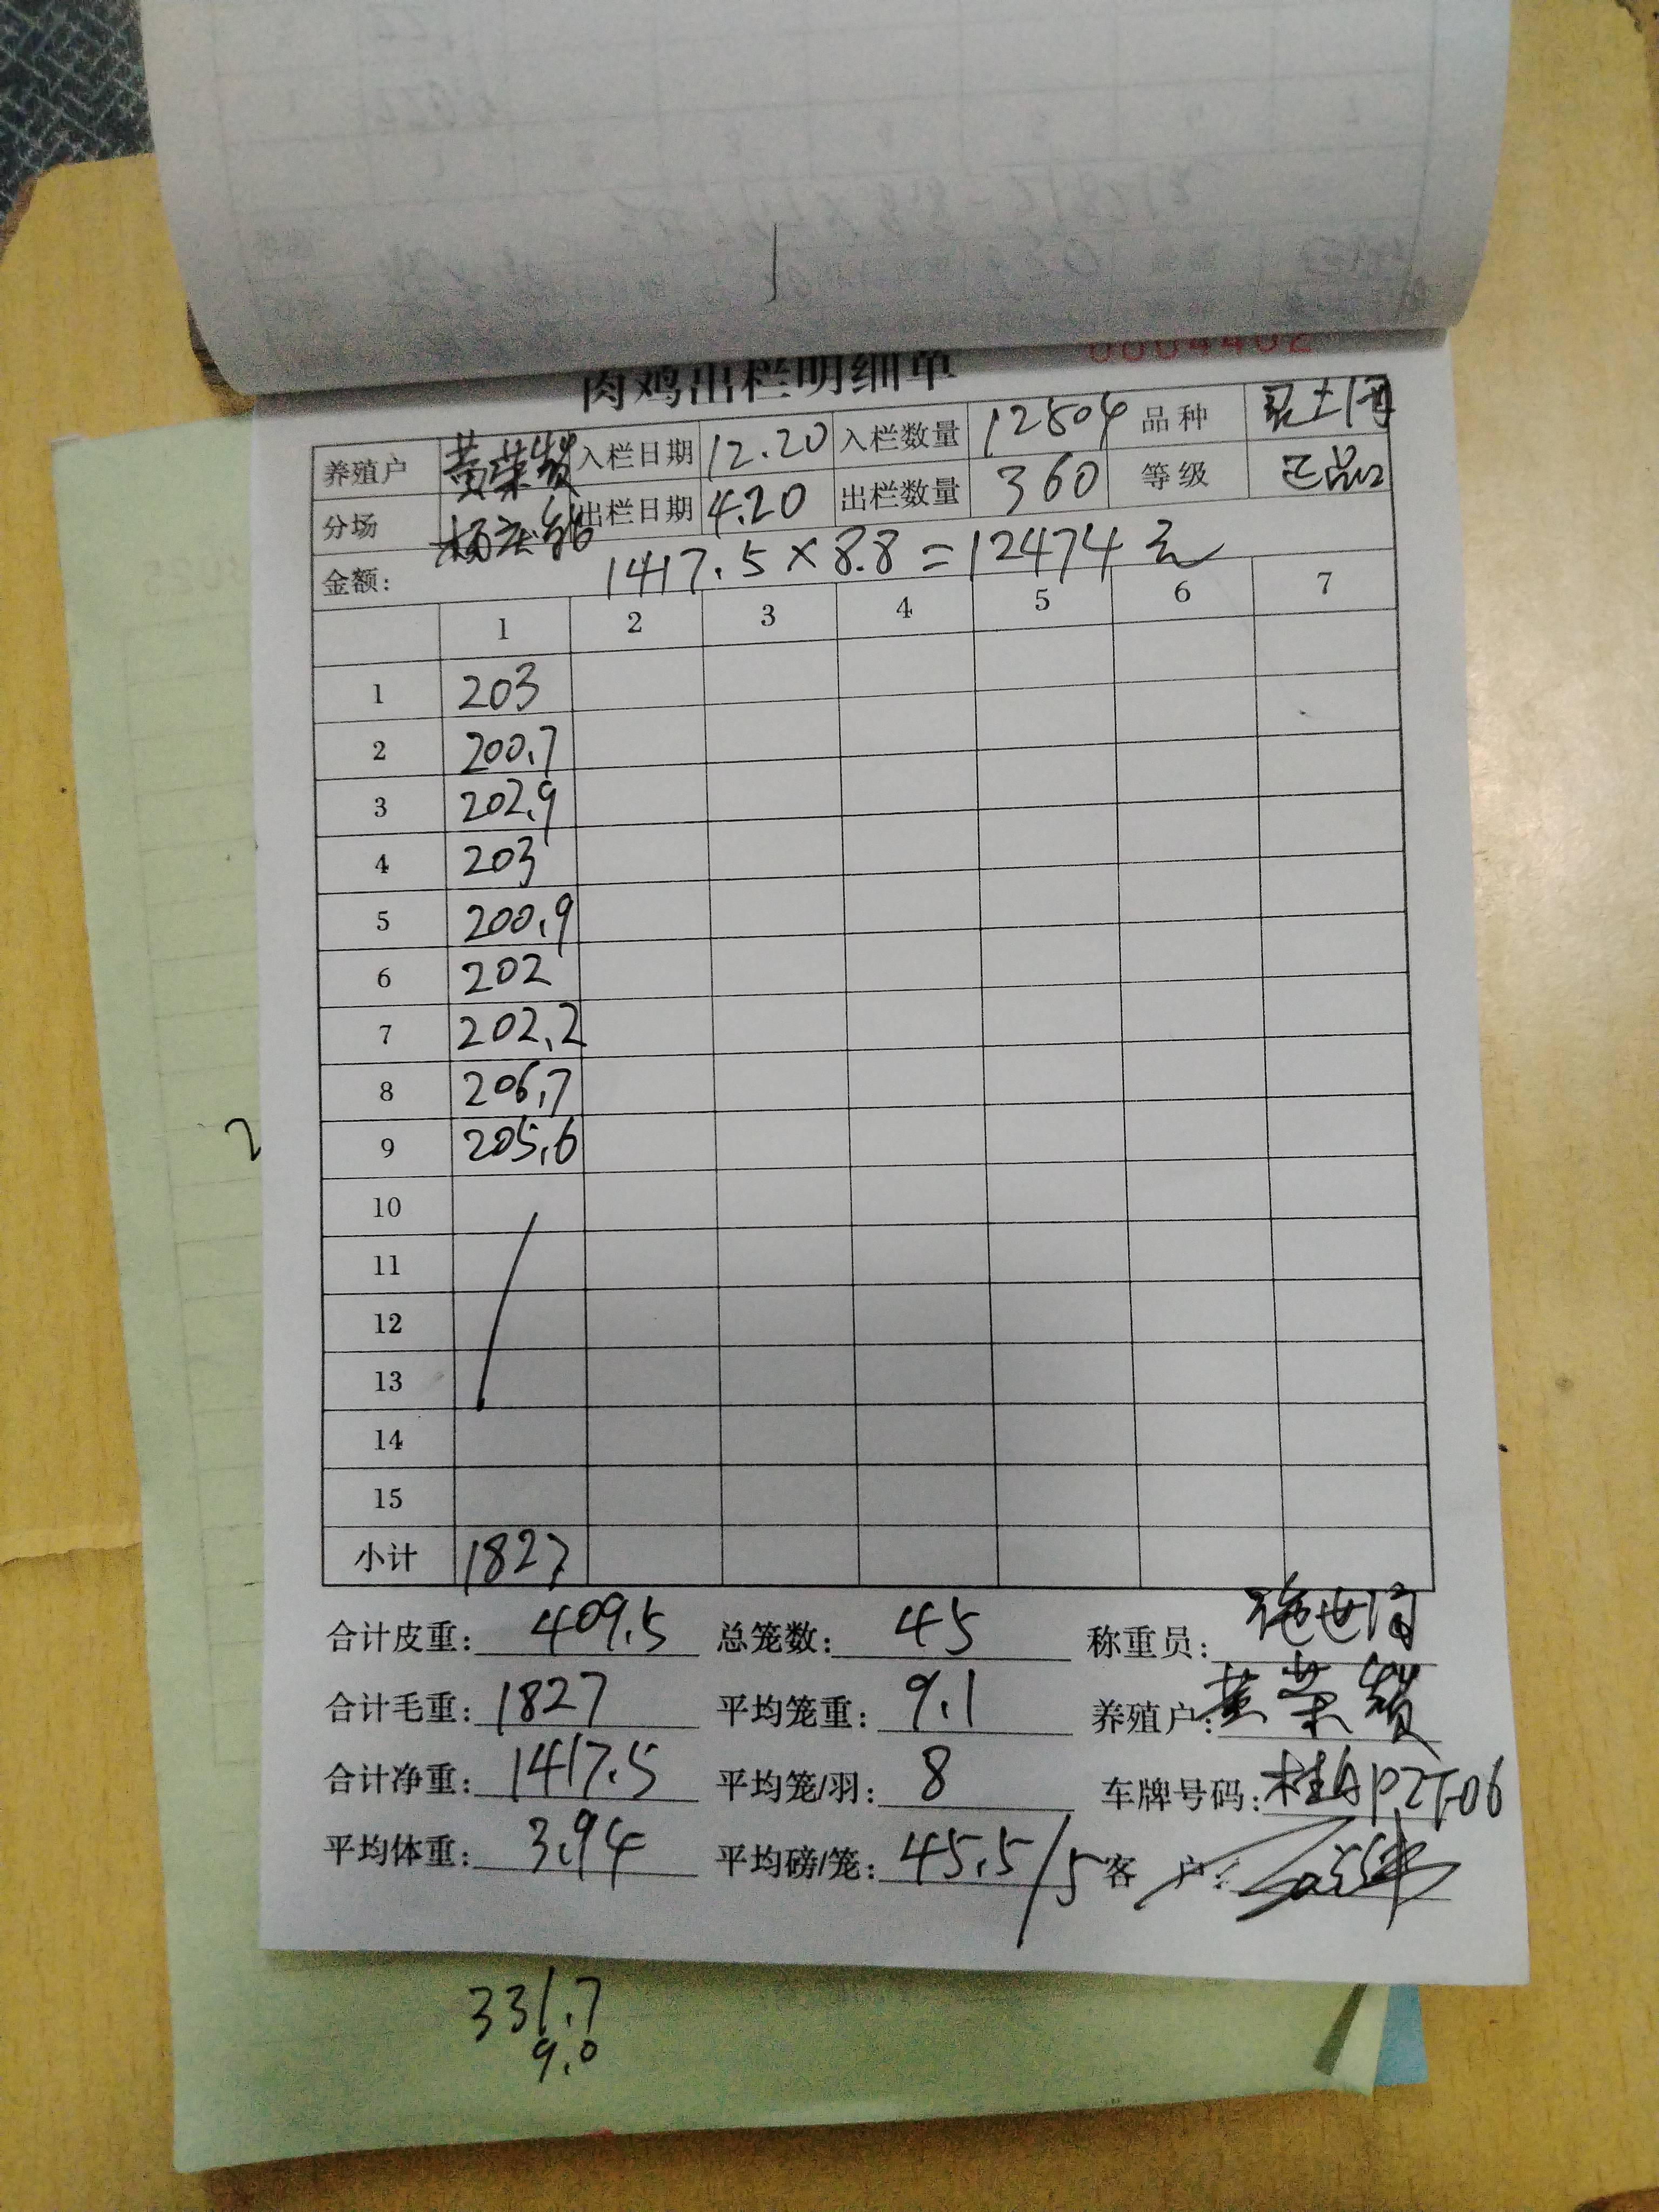 肉鸡出栏明细单 0004402
养殖户 黄荣 入栏日期 12.20 入栏数量 12504 品种 土
分场 杨 出栏日期 4.20 出栏数量 360 等级 正品
金额: 1417.5×8.8=12474元
1 2 3 4 5 6 7
1 203
2 200.7
3 202.9
4 203
5 200.9
6 202
7 202.2
8 206.7
9 205.6
10
11
12
13
14
15
小计 1827
合计皮重: 409.5 总笼数: 45 称重员: 施世
合计毛重: 1827 平均笼重: 9.1 养殖户: 黄荣
合计净重: 1417.5 平均笼/羽: 8 车牌号码: 桂APZT06
平均体重: 3.94 平均磅/笼: 45.5/5 客 户:
2
331.7
9.0